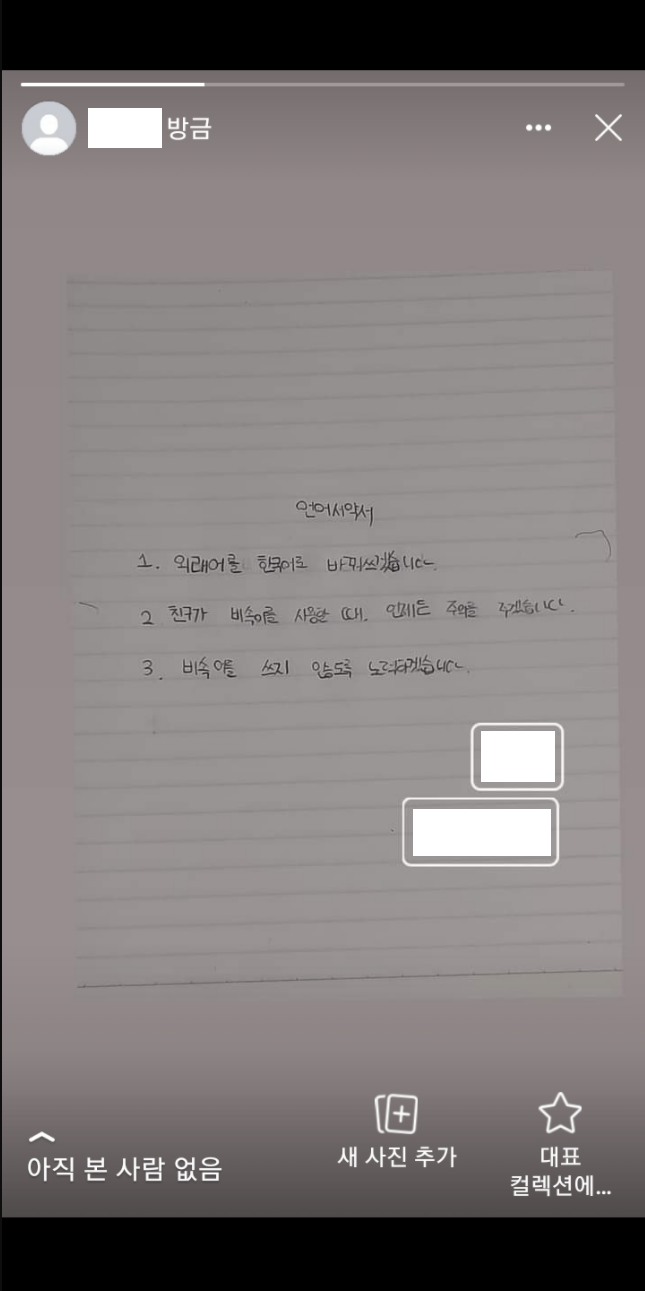 방금
언어서약서
1. 외래어를 한국어로 바꿔쓰겠습니다.
2 친구가 비속어를 사용할 때, 언제든 주의를 주겠습니다.
3. 비속어를 쓰지 않도록 노력하겠습니다.
아직 본 사람 없음
새 사진 추가
대표
컬렉션에...